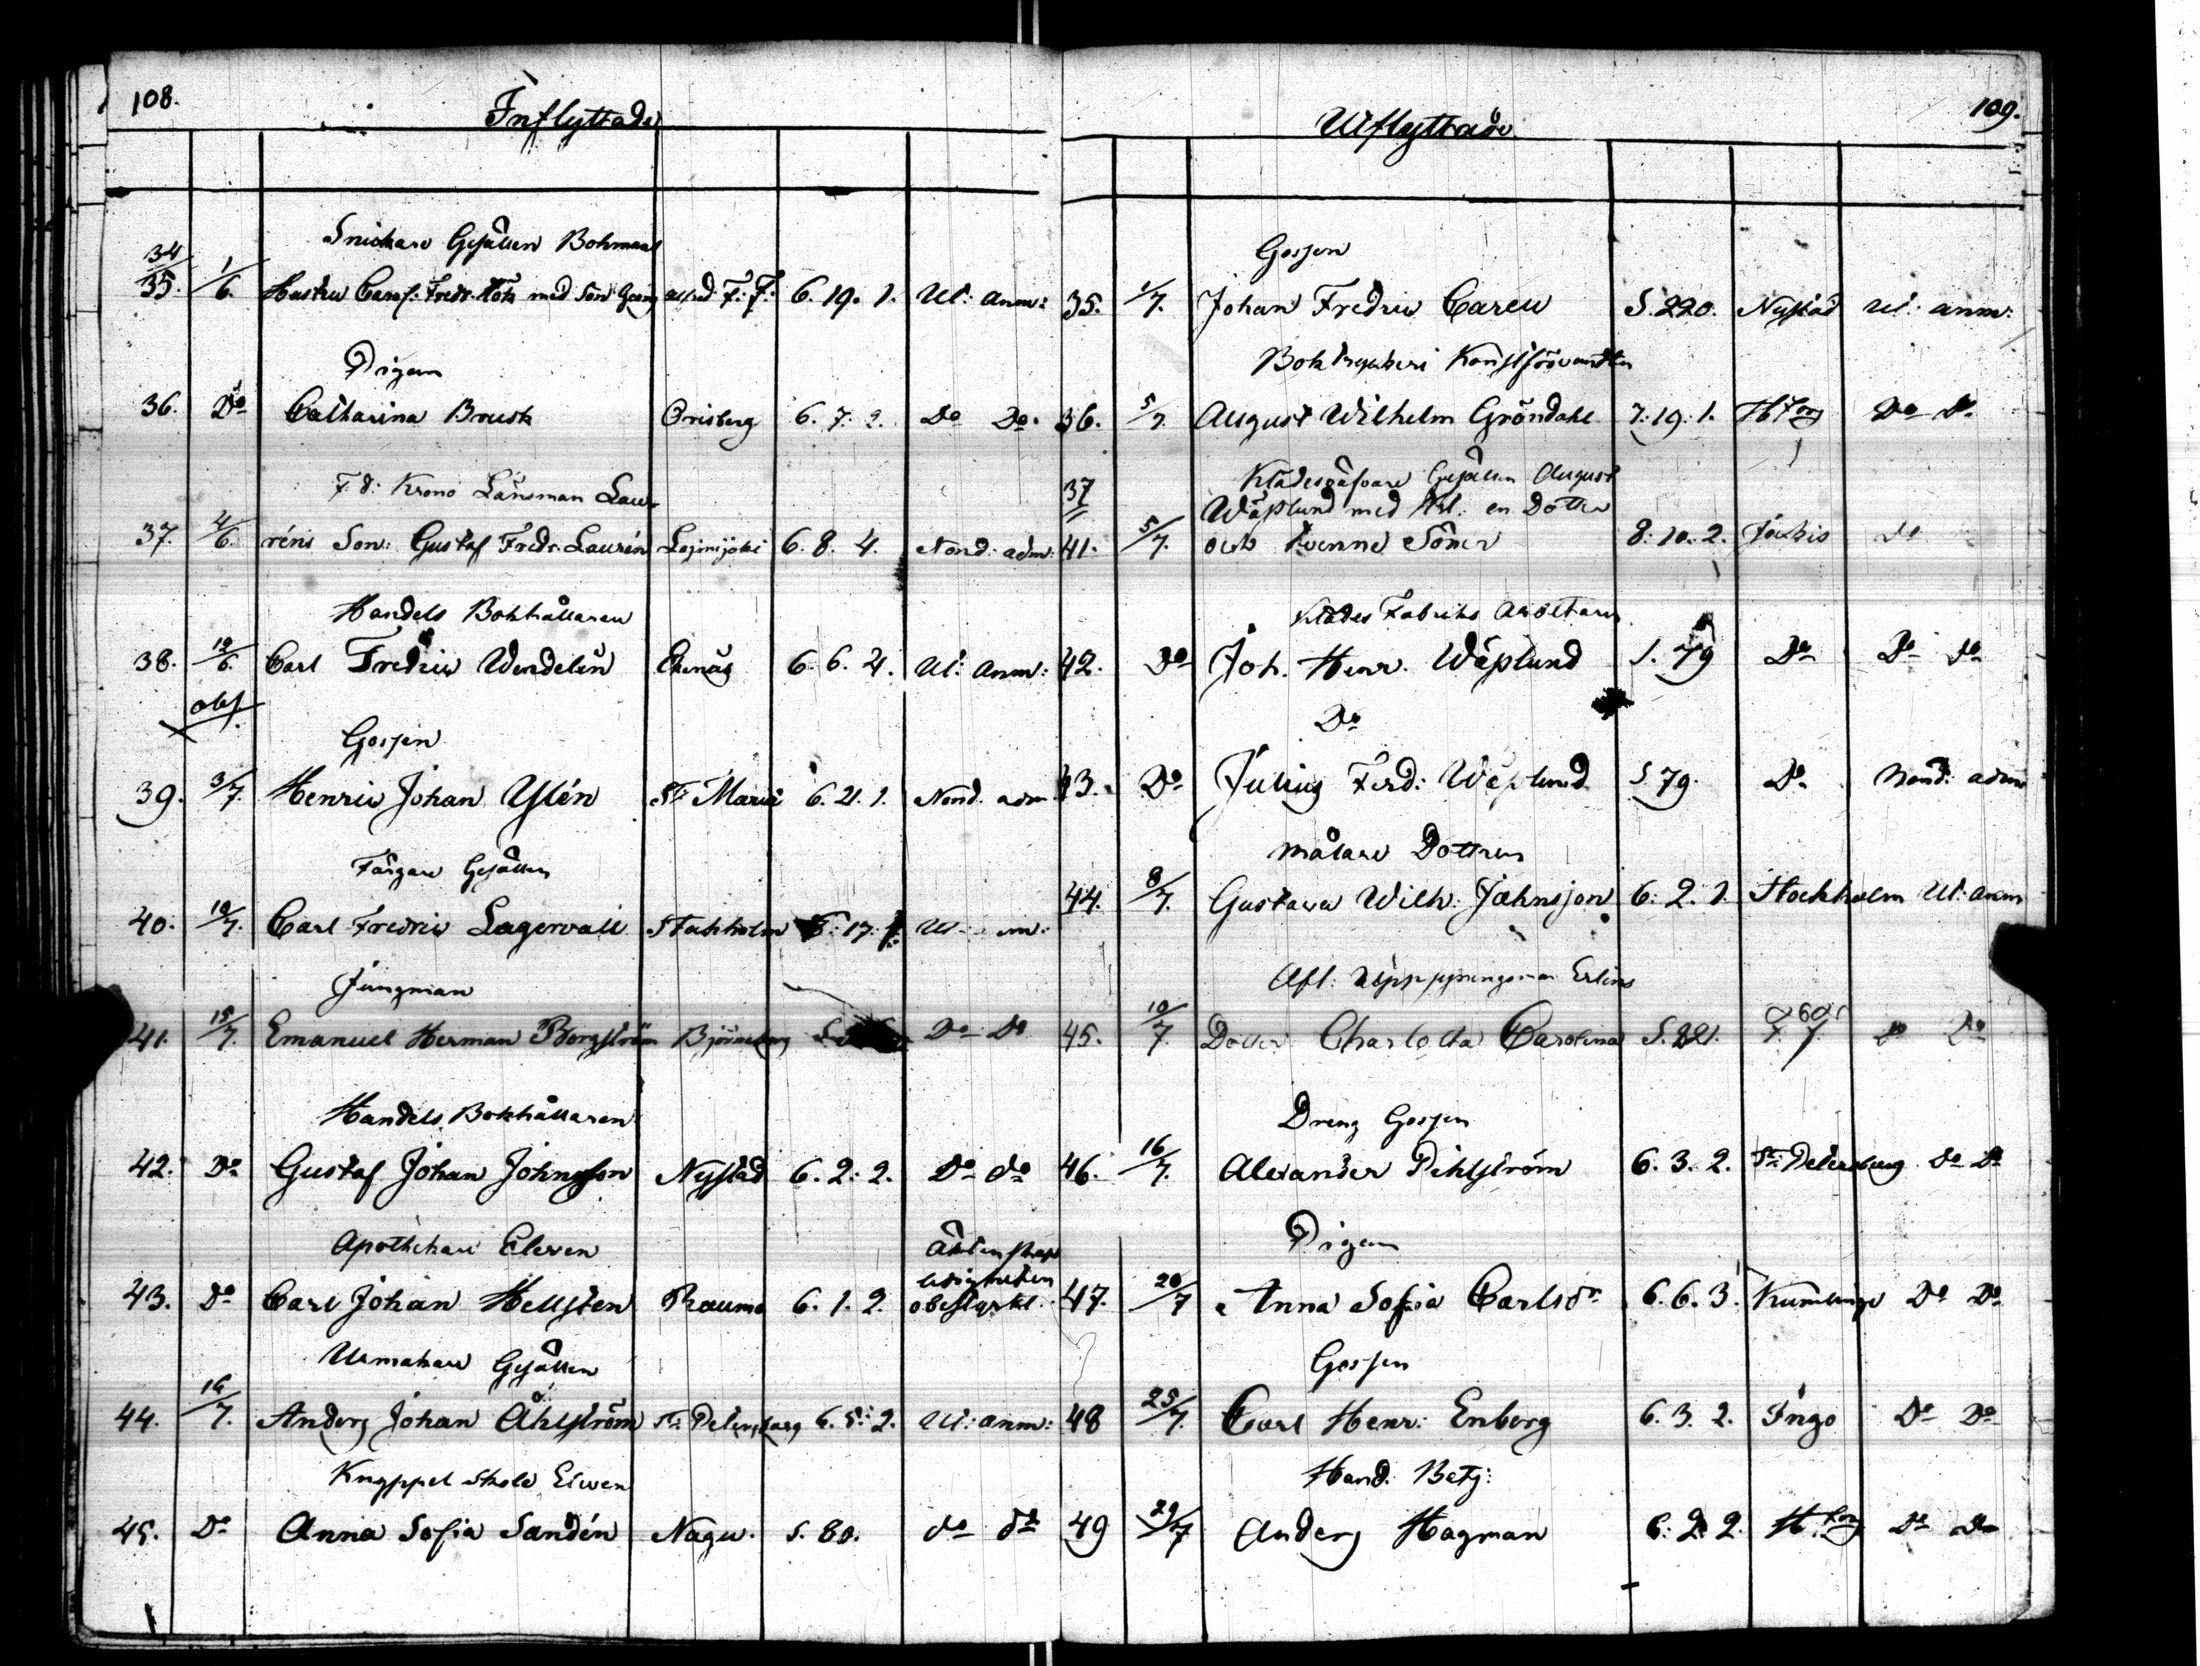 108.
Inflyttade
Snickare Gesällen Bohmans
34/35. 1/6. Hustru Carol: Fredr. med Son Georg Alfred F: F: 6. 19. 1. Ut: anm:
Pigan
36. Do Catharina Brusk Orisberg 6. 7. 2. Do Do.
F. d: Krono Länsman Lau-
37. 4/6. réns Son: Gustaf Fredr. Laurén Loimijoki 6. 8. 4. Nond: adm:
Handels Bokhållaren
38. 12/6. Carl Fredric Wendelin Ekenäs 6. 6. 4. Ut: anm:
obs.
Gossen
39. 3/7. Henric Johan Ylén St: Marie 6. 21. 1. Nond. adm
Färgare Gesällen
40. 10/7. Carl Fredric Lagervall Stokholm 17. Ut
Jungman
41. 15/7. Emanuel Herman Borgström Björneborg Do Do
Handels Bokhållaren
42. Do Gustaf Johan Johnsson Nystad 6. 2. 2. Do do
Apothekare Eleven
43. Do Carl Johan Hellsten Raumo 6. 1. 2. Äktenskaps ledigheten obestyrkt.
Urmakare Gesällen
44. 16/7. Anders Johan Åhlström St: Petersburg 6. 5. 2. Ut: anm:
Knyppel Skole Eleven
45. Do Anna Sofia Sandén Nagu. S. 80. do do
109.
Utflyttade
Gossen
35. 1/7. Johan Fredric Caren S. 220. Nystad Ut: anm:
Boktryckeri Konstförvandten
36. 5/7. August Wilhelm Gröndahl 7. 19. 1. Hfors Do Do
37 Klädesväfvare Gesällen August
Wäplund med Hst: en Dotter
41. 5/7. och tvenne Söner 8. 10. 2. Jockis Do
Klädes Fabriks Arbetaren
42. Do Joh. Henr. Wäplund S. 79 Do Do do
Do
43. Do Julius Ferd: Wäplund S 79. Do Nond: adm
Målare Dottren
44. 8/7. Gustava Wilh: Johnsson 6. 2. 1. Stockholm Ut: anm
Afl: Erlins
45. 10/7. Dotter Charlotta Carolina S. 221. Do Do
Dreng Gossen
46. 16/7. Alexander Pihlström 6. 3. 2. St: Petersburg Do Do
Pigan
47. 20/7 Anna Sofia Carlsdr 6. 6. 3. Kumlinge Do Do
Gossen
48 25/7. Carl Henr: Enberg 6. 3. 2. Ingo Do Do
Hand. Betj:
49 29/7 Anders Hagman 6. 2. 2. Hfors Do Do